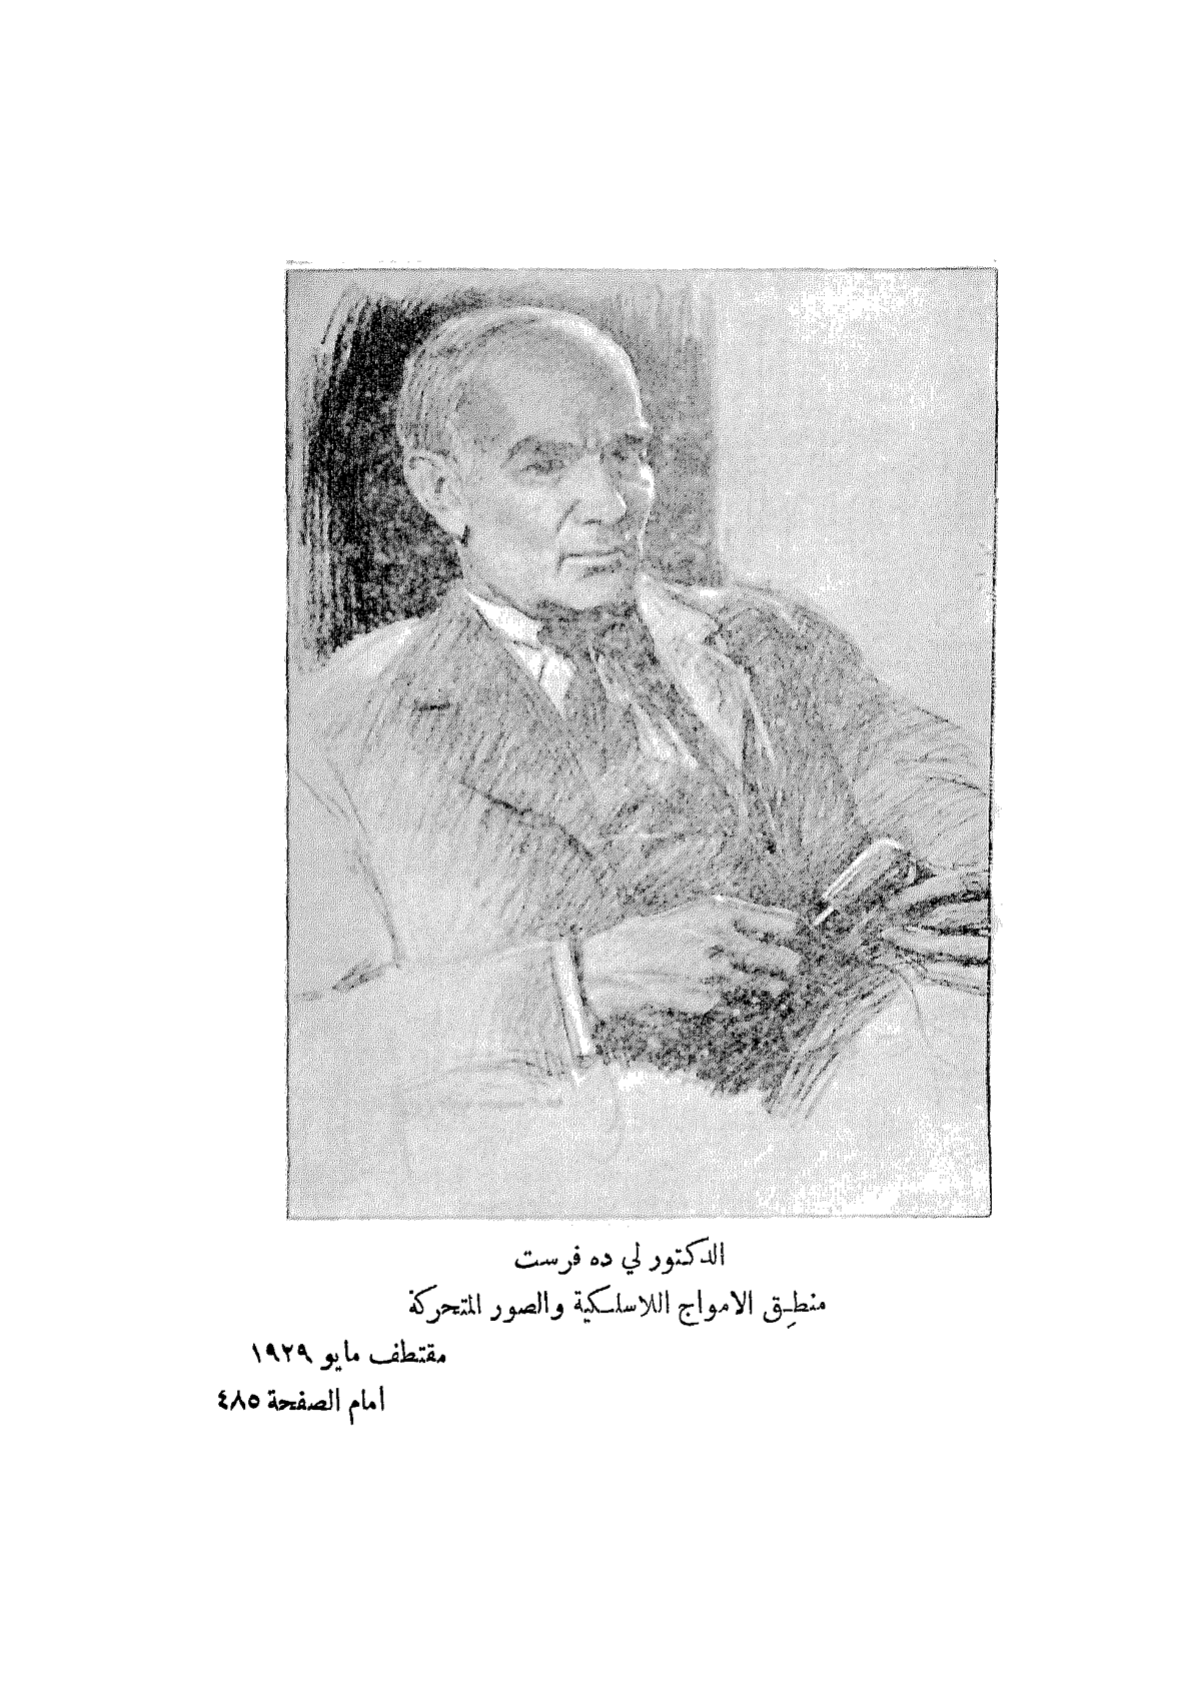 الدكتور لي ده فرست
منطِق الامواج اللاسلكية والصور المتحركة
مقتطف مايو ١٩٢٩
امام الصفحة ٤٨٥